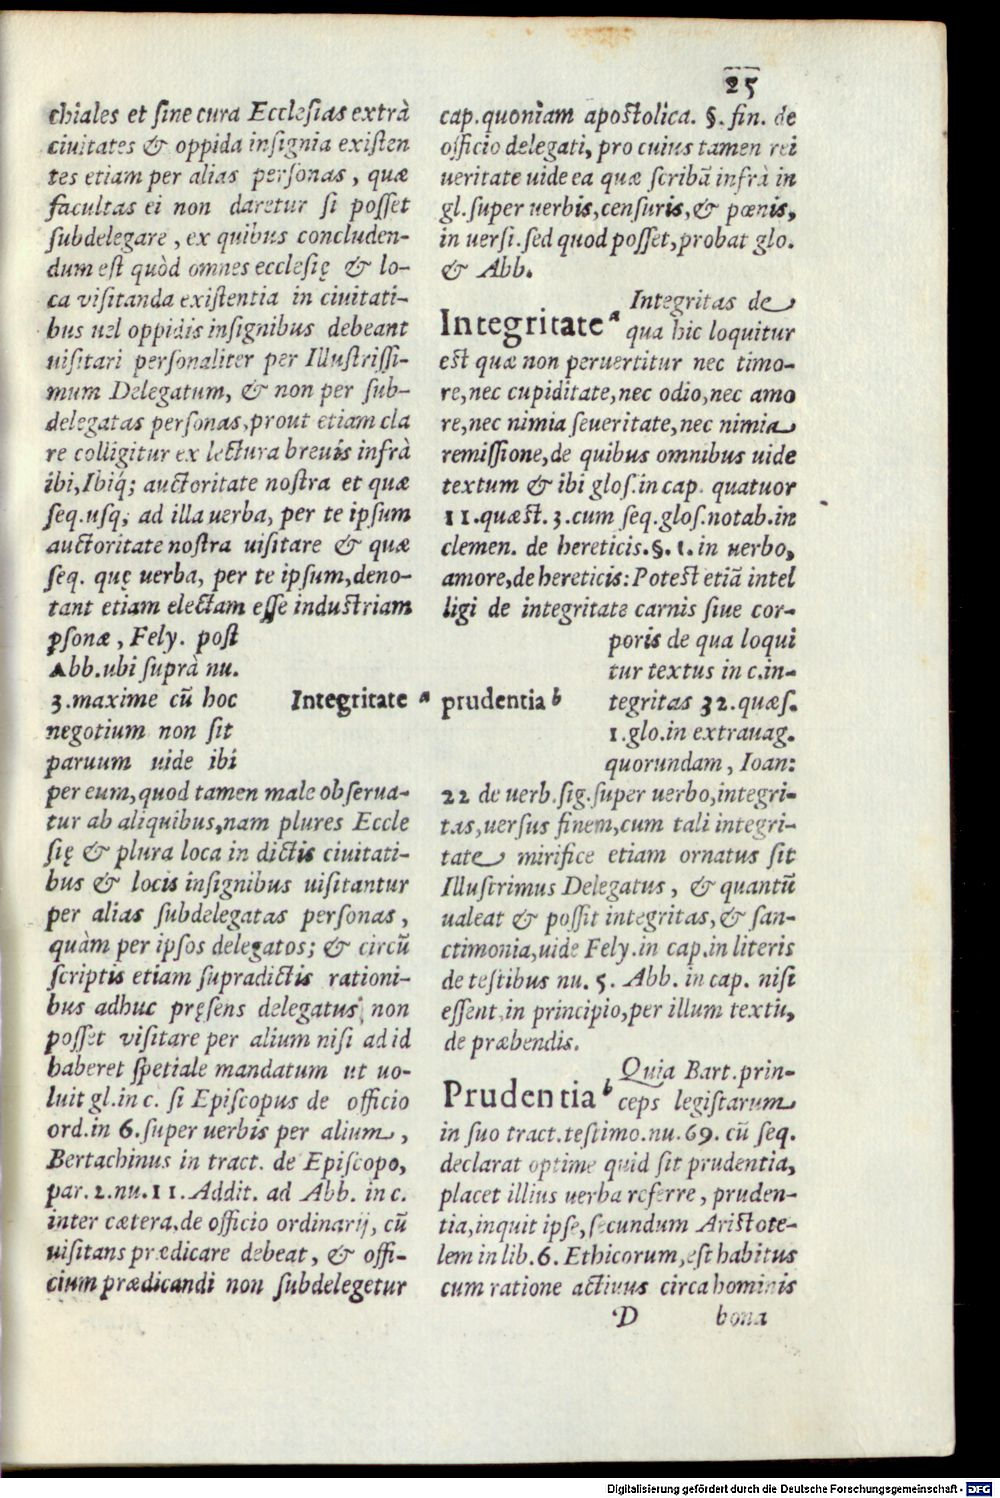 25
chiales et ſine cura Eccleſias extrà
ciuitates & oppida inſignia exiſten
tes etiam per alias perſonas, quæ
facultas ei non daretur ſi poſſet
ſubdelegare, ex quibus concluden-
dum eſt quòd omnes eccleſię & lo-
ca viſitanda exiſtentia in ciuitati-
bus uel oppidis inſignibus debeant
uiſitari perſonaliter per Illuſtriſſi-
mum Delegatum, & non per ſub-
delegatas perſonas, prout etiam cla
re colligitur ex lectura breuis infrà
ibi, Ibiq́; auctoritate noſtra et quæ
ſeq. uſq; ad illa uerba, per te ipſum
auctoritate noſtra uiſitare & quæ
ſeq. quę uerba, per te ipſum, deno-
tant etiam electam eſſe induſtriam
ꝑſonæ, Fely. poſt
Abb. ubi ſuprà nu.
3. maxime cū hoc
negotium non ſit
paruum uide ibi
per eum, quod tamen male obſerua-
tur ab aliquibus, nam plures Eccle
ſię & plura loca in dictis ciuitati-
bus & locis inſignibus uiſitantur
per alias ſubdelegatas perſonas,
quàm per ipſos delegatos; & circū
ſcriptis etiam ſupradictis rationi-
bus adhuc pręſens delegatus non
poſſet viſitare per alium niſi ad id
haberet ſpetiale mandatum ut uo-
luit gl. in c. ſi Epiſcopus de officio
ord. in 6. ſuper uerbis per alium,
Bertachinus in tract. de Epiſcopo,
par. 2. nu. 11. Addit. ad Abb. in c.
inter cætera, de officio ordinarij, cū
uiſitans prædicare debeat, & offi-
cium prædicandi non ſubdelegetur
Integritate a prudentia b
cap. quoniam apoſtolica. §. fin. de
officio delegati, pro cuius tamen rei
ueritate uide ea quæ ſcribā infrà in
gl. ſuper uerbis, cenſuris, & pœnis,
in uerſi. ſed quod poſſet, probat glo.
& Abb.
Integritate a Integritas de
qua hic loquitur
eſt quæ non peruertitur nec timo-
re, nec cupiditate, nec odio, nec amo
re, nec nimia ſeueritate, nec nimia
remiſſione, de quibus omnibus uide
textum & ibi gloſ. in cap. quatuor
11. quæſt. 3. cum ſeq. gloſ. notab. in
clemen. de hereticis. §. 1. in uerbo,
amore, de hereticis: Poteſt etiā intel
ligi de integritate carnis ſiue cor-
poris de qua loqui
tur textus in c. in-
tegritas 32. quæſ.
1. glo. in extrauag.
quorundam, Ioan:
22 de uerb. ſig. ſuper uerbo, integri-
tas, uerſus finem, cum tali integri-
tate mirifice etiam ornatus ſit
Illuſtrimus Delegatus, & quantū
ualeat & poſſit integritas, & ſan-
ctimonia, uide Fely. in cap. in literis
de teſtibus nu. 5. Abb. in cap. niſi
eſſent, in principio, per illum textū,
de præbendis.
Prudentia b Quia Bart. prin-
ceps legiſtarum
in ſuo tract. teſtimo. nu. 69. cū ſeq.
declarat optime quid ſit prudentia,
placet illius uerba referre, pruden-
tia, inquit ipſe, ſecundum Ariſtote-
lem in lib. 6. Ethicorum, eſt habitus
cum ratione actiuus circa hominis
D bona
Digitalisierung gefördert durch die Deutsche Forschungsgemeinschaft - DFG